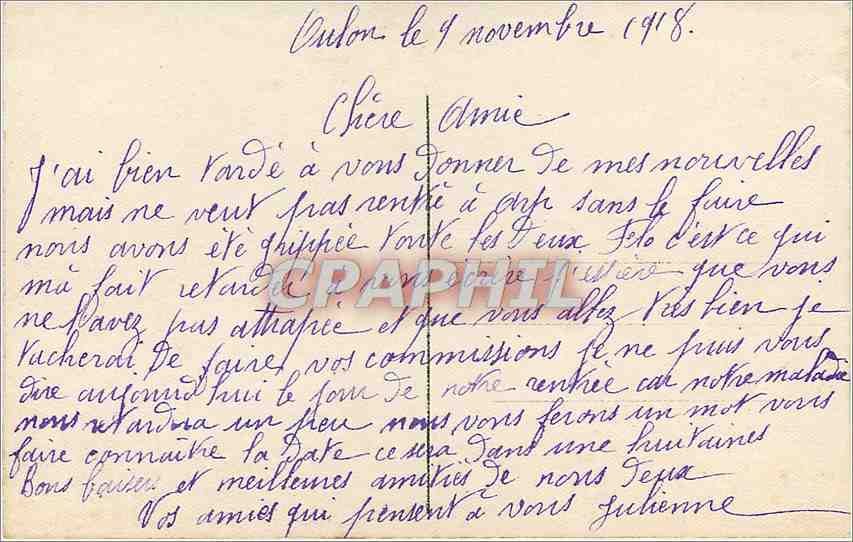 Oulon le 9 novembre 1918.
Chère Amie
J'ai bien tardé à vous donner de mes nouvelles
mais ne veut pas rentré à sans le faire
nous avons été grippée toute les deux Flo c'est ce qui
m'à fait retarder à vous écrire j'espère que vous
ne l'avez pas attrapée et que vous allez très bien je
tacherai de faire vos commissions je ne puis vous
dire aujourd'hui le jour de notre rentrée car notre maladie
nous retardera un peu nous vous ferons un mot vous
faire connaître la date ce sera dans une huitaines
Bons baisers et meilleures amitiés de nous deux
Vos amies qui pensent à vous Julienne
CPAPHIL